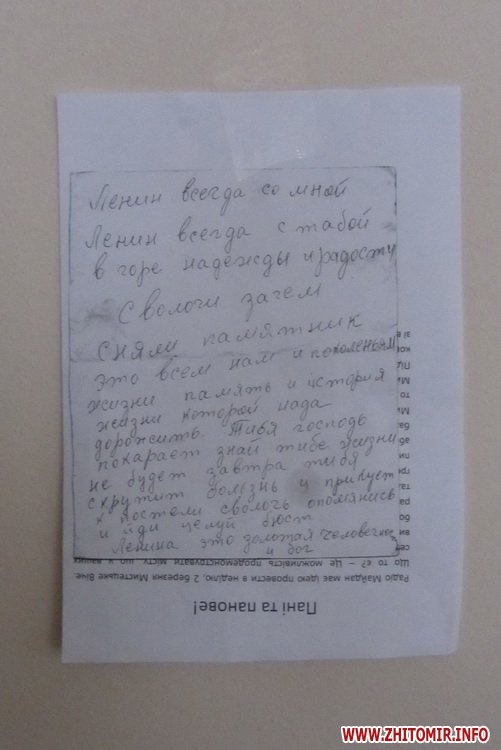 Ленин всегда со мной
Ленин всегда с табой
в горе надежды и радости
Сволочи зачем
сняли памятник
это всем нам и поколеньям
жизни память и история
жизни которой нада
дорожить. Тибя господь
покарает знай тибе жизни
не будет завтра тибя
скрутит болызнь и прикует
к постели сволочь опомянись
и йди целуй бюст
Ленина это золотай человечик
и бог
Що то є? – Це можливість продемонструвати місту, що у наших
Радіо Майдан має ідею провести в неділю, 2 березня Мистецьке Віче.
Пані та панове!
WWW.ZHITOMIR.INFO